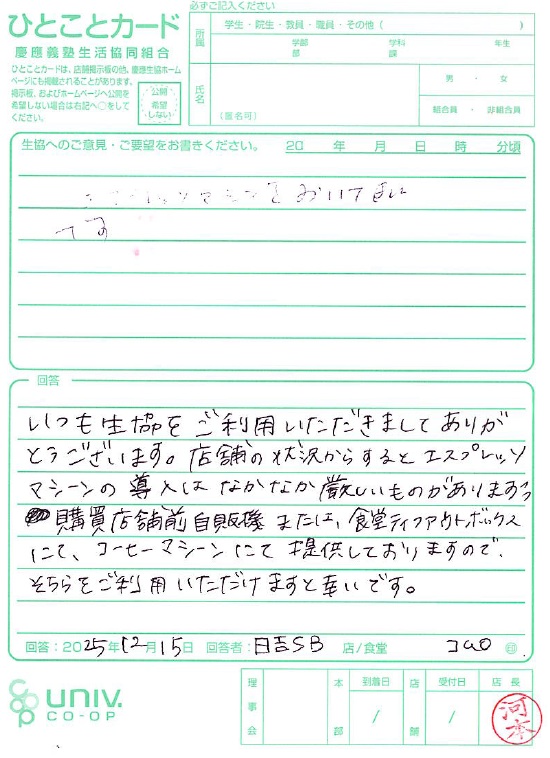 必ずご記入ください
ひとことカード
慶應義塾生活協同組合
ひとことカードは、店舗掲示板の他、慶應生協ホーム
ページにも掲載されることがあります。
掲示板、およびホームページへ公開を
希望しない場合は右記へ○をして
ください。
公開
希望
しない
所属
学生・院生・教員・職員・その他（　　　）
学部　学科　年生
部　課
氏名
（匿名可）
男・女
組合員・非組合員
生協へのご意見・ご要望をお書きください。
20　年　月　日　時　分頃
マシンを おいてほしい
です
回答
いつも生協をご利用いただきましてありが
とうございます。店舗の状況からするとエスプレッソ
マシーンの導入はなかなか厳しいものがあります。
購買店舗前自販機または、食堂テイクアウトボックス
にて、コーヒーマシーンにて提供しておりますので、
そちらをご利用いただけますと幸いです。
回答：2025年12月15日　回答者：日吉SB　店/食堂　印
UNIV.
CO-OP
理事会
本部
到着日
/
店舗
受付日
/
店長
河本